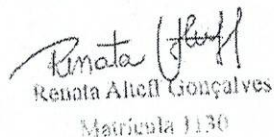 Renata
Renata Gonçalves
Matrícula 1130